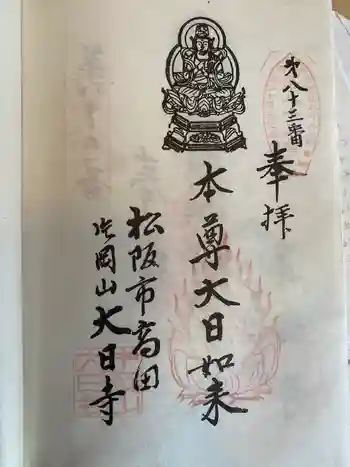 第八十三番
奉拝
本尊大日如来
松阪市高田
片岡山大日寺